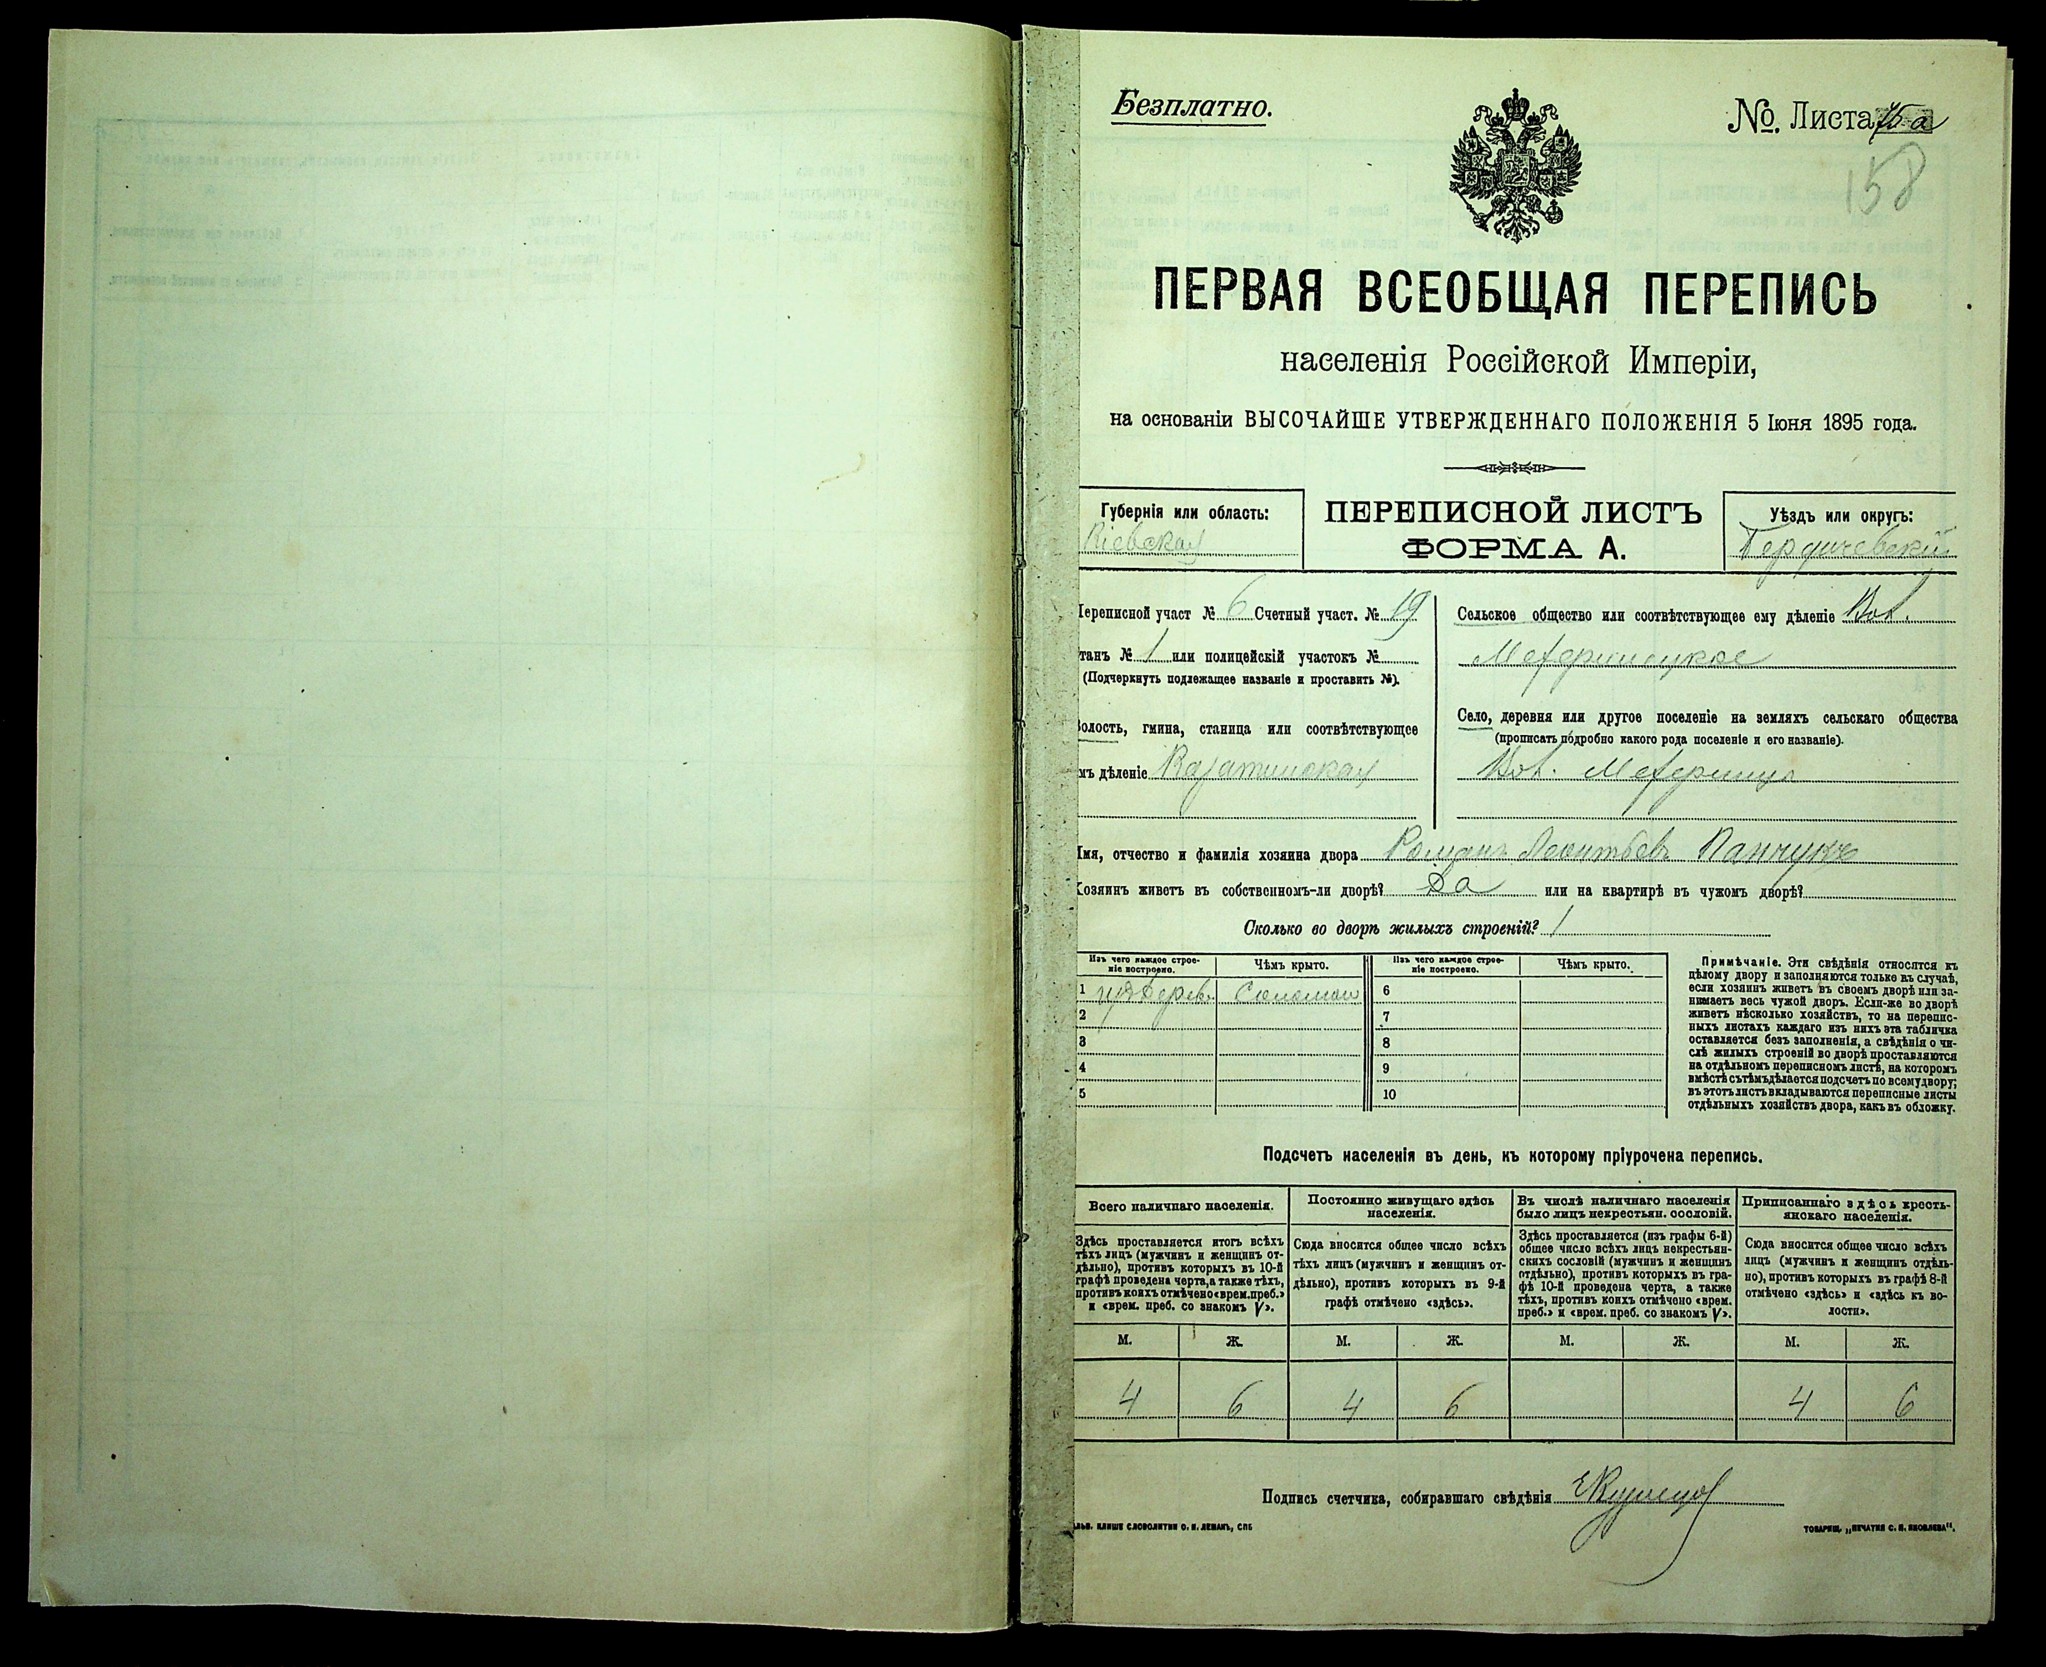 Безплатно.
№. Листа 75 а
158
ПЕРВАЯ ВСЕОБЩАЯ ПЕРЕПИСЬ
населенія Россійской Имперіи,
на основаніи ВЫСОЧАЙШЕ УТВЕРЖДЕННАГО ПОЛОЖЕНІЯ 5 Іюня 1895 года.
Губернія или область:
Кіевская
ПЕРЕПИСНОЙ ЛИСТЪ
ФОРМА А.
Уѣздъ или округъ:
Бердичевскій
Переписной участ № 6 Счетный участ. № 19
танъ № 1 или полицейскій участокъ №
(Подчеркнуть подлежащее названіе и проставить №).
волость, гмина, станица или соотвѣтствующее
мъ дѣленіе Казатинская
Сельское общество или соотвѣтствующее ему дѣленіе
Село, деревня или другое поселеніе на земляхъ сельскаго общества
(прописать подробно какого рода поселеніе и его названіе).
Имя, отчество и фамилія хозяина двора Романъ Леонтьевъ Панчукъ
Хозяинъ живетъ въ собственномъ-ли дворѣ? Да или на квартирѣ въ чужомъ дворѣ?
Сколько во дворѣ жилыхъ строеній? 1
Изъ чего каждое строе-
ніе построено.
Чѣмъ крыто.
Изъ чего каждое строе-
ніе построено.
Чѣмъ крыто.
1 Соломою 6
2 7
3 8
4 9
5 10
Примѣчаніе. Эти свѣдѣнія относятся къ
цѣлому двору и заполняются только въ случаѣ,
если хозяинъ живетъ въ своемъ дворѣ или за-
нимаетъ весь чужой дворъ. Если-же во дворѣ
живетъ нѣсколько хозяйствъ, то на перепис-
ныхъ листахъ каждаго изъ нихъ эта табличка
оставляется безъ заполненія, а свѣдѣнія о чи-
слѣ жилыхъ строеній во дворѣ проставляются
на отдѣльномъ переписномъ листѣ, на которомъ
вмѣстѣ съ тѣмъ дѣлается подсчетъ по всему двору;
въ этотъ листъ вкладываются переписные листы
отдѣльныхъ хозяйствъ двора, какъ въ обложку.
Подсчетъ населенія въ день, къ которому пріурочена перепись.
Всего наличнаго населенія.
Здѣсь проставляется итогъ всѣхъ
тѣхъ лицъ (мужчинъ и женщинъ от-
дѣльно), противъ которыхъ въ 10-й
графѣ проведена черта, а также тѣхъ,
противъ коихъ отмѣчено «врем. преб.»
и «врем. преб. со знакомъ V».
Постоянно живущаго здѣсь
населенія.
Сюда вносится общее число всѣхъ
тѣхъ лицъ (мужчинъ и женщинъ от-
дѣльно), противъ которыхъ въ 9-й
графѣ отмѣчено «здѣсь».
Въ числѣ наличнаго населенія
было лицъ некрестьян. сословій.
Здѣсь проставляется (изъ графы 6-й)
общее число всѣхъ лицъ некрестьян-
скихъ сословій (мужчинъ и женщинъ
отдѣльно), противъ которыхъ въ гра-
фѣ 10-й проведена черта, а также
тѣхъ, противъ коихъ отмѣчено «врем.
преб.» и «врем. преб. со знакомъ V».
Приписаннаго здѣсь кресть-
янскаго населенія.
Сюда вносится общее число всѣхъ
лицъ (мужчинъ и женщинъ отдѣль-
но), противъ которыхъ въ графѣ 8-й
отмѣчено «здѣсь» и «здѣсь къ во-
лости».
М. Ж. М. Ж. М. Ж. М. Ж.
4 6 4 6 4 6
Подпись счетчика, собиравшаго свѣдѣнія
КЛИШЕ СЛОВОЛИТНИ О. И. ЛЕМАНЪ, СПБ
ТОВАРИЩ. „ПЕЧАТНЯ С. П. ЯКОВЛЕВА".